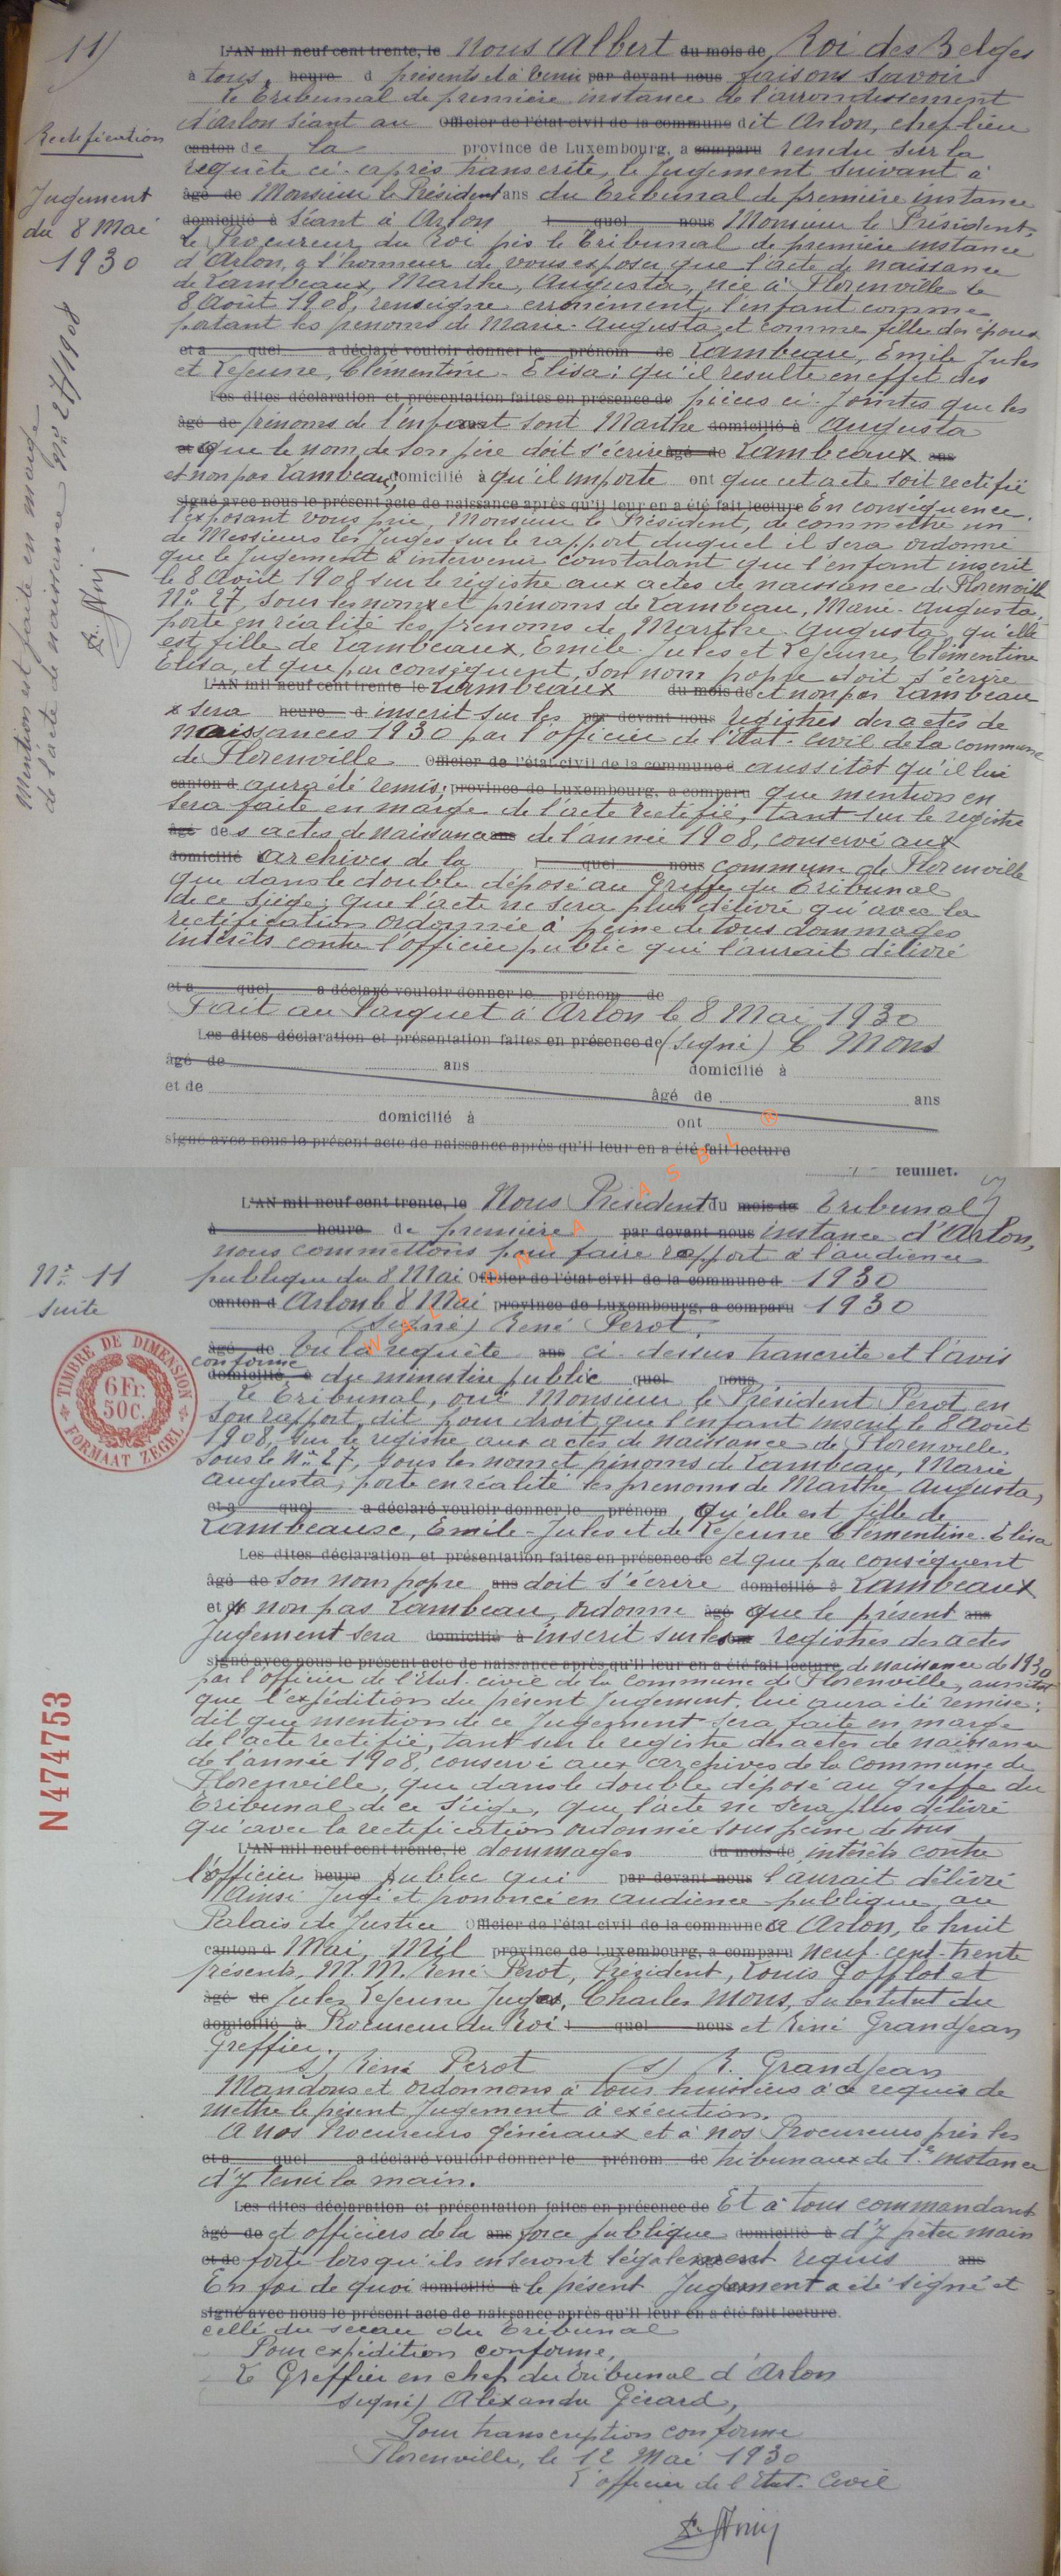 11)
Rectification
Jugement
du 8 Mai
1930
Mention est faite en marge
de l'acte de naissance Nº 27/1908
L'AN mil neuf cent trente, le Nous Albert du mois de Roi des Belges
à tous, heure d présents et à venir par devant nous faisons savoir
Le Tribunal de première instance de l'arrondissement
d'Arlon séant au Officier de l'état civil de la commune dit Arlon, chef-lieu
canton de la province de Luxembourg, a comparu rendu sur la
requête ci-après transcrite, le Jugement suivant à
âgé de Monsieur le Président ans du Tribunal de première instance
domicilié à séant à Arlon l quel nous Monsieur le Président,
Le Procureur du roi près le Tribunal de première instance
d'Arlon, a l'honneur de vous exposer que l'acte de naissance
de Lambeaux, Marthe, Augusta, née à Florenville le
8 Août 1908, renseigne erronément, l'enfant comme
portant les prénoms de Marie-Augusta et comme fille des époux
et a quel a déclaré vouloir donner le prénom de Lambeau, Emile Jules
et Lejeune, Clémentine-Elisa; qu'il résulte en effet des
Les dites déclaration et présentation faites en présence de pièces ci-jointes que les
âgé de prénoms de l'enfant sont Marthe domicilié à Augusta
et que le nom de son père doit s'écrire âgé de Lambeaux ans
et non pas Lambeau, domicilié à qu'il importe ont que cet acte soit rectifié
signé avec nous le présent acte de naissance après qu'il leur en a été fait lecture En conséquence
l'exposant vous prie, Monsieur le Président, de commettre un
de Messieurs les Juges sur le rapport duquel il sera ordonné
que le Jugement à intervenir constatant que l'enfant inscrit
le 8 Août 1908 sur le registre aux actes de naissance de Florenville
Nº 27, sous les nom et prénoms de Lambeau, Marie-Augusta,
porte en réalité les prénoms de Marthe Augusta, qu'elle
est fille de Lambeaux, Emile-Jules et Lejeune, Clémentine
Elisa, et que par conséquent, son nom propre doit s'écrire
L'AN mil neuf cent trente le Lambeaux du mois de et non pas Lambeau
x sera heure d inscrit sur les par devant nous registres des actes de
naissances 1930 par l'officier de l'Etat-Civil de la commune
de Florenville Officier de l'état civil de la commune d aussitôt qu'il lui
canton d aura été remis; province de Luxembourg, a comparu que mention en
sera faite en marge de l'acte rectifié, tant sur le registre
âgé des actes de naissance ans de l'année 1908, conservé aux
domicilié archives de la l quel nous commune de Florenville
que dans le double déposé au Greffe du Tribunal
de ce siège; que l'acte ne sera plus délivré qu'avec la
rectification ordonnée à peine de tous dommages
intérêts contre l'officier public qui l'aurait délivré
et a quel a déclaré vouloir donner le prénom de
Fait au Parquet à Arlon le 8 Mai 1930
Les dites déclaration et présentation faites en présence de (signé) C Mons
âgé de ans domicilié à
et de âgé de ans
domicilié à ont
signé avec nous le présent acte de naissance après qu'il leur en a été fait lecture
WALLONIA ASBL ®
feuillet.
Nº 11
suite
TIMBRE DE DIMENSION
6 Fr.
50 C.
FORMAAT ZEGEL
N 474753
L'AN mil neuf cent trente, le Nous Président du mois de Tribunal
à heure de première par devant nous instance d'Arlon,
nous commettons pour faire rapport à l'audience
publique du 8 Mai Officier de l'état civil de la commune d 1930
canton d Arlon le 8 Mai province de Luxembourg, a comparu 1930
(signé) René Perot,
âgé de Vu la requête ans ci-dessus transcrite et l'avis
conforme
domicilié, à du ministère public quel nous
Le Tribunal, ouï Monsieur le Président Perot en
son rapport, dit pour droit que l'enfant inscrit le 8 Août
1908, sur le registre aux actes de naissance de Florenville,
sous le Nº 27, sous les nom et prénoms de Lambeau, Marie
Augusta, porte en réalité les prénoms de Marthe Augusta,
et a quel a déclaré vouloir donner le prénom qu'elle est fille de
Lambeaux, Emile-Jules et de Lejeune Clémentine-Elisa
Les dites déclaration et présentation faites en présence de et que par conséquent
âgé de son nom propre ans doit s'écrire domicilié à Lambeaux
et de non pas Lambeau, ordonne âgé que le présent ans
Jugement sera domicilié à inscrit sur les registres des actes
signé avec nous le présent acte de naissance après qu'il leur en a été fait lecture de naissance de 1930
par l'officier de l'Etat-civil de la commune de Florenville, aussitôt
que l'expédition du présent Jugement, lui aura été remise;
dit que mention de ce Jugement sera faite en marge
de l'acte rectifié, tant sur le registre des actes de naissance
de l'année 1908, conservé aux archives de la commune de
Florenville, que dans le double déposé au greffe du
Tribunal de ce siège, que l'acte ne sera plus délivré
qu'avec la rectification ordonnée sous peine de tous
L'AN mil neuf cent trente, le dommages du mois de intérêts contre
l'officier heure public qui par devant nous l'aurait délivré
Ainsi Jugé et prononcé en audience publique au
Palais de Justice Officier de l'état civil de la commune d à Arlon, le huit
canton d Mai, Mil province de Luxembourg, a comparu neuf-cent-trente
présents, M.M. René Perot, Président, Louis Gofflot et
âgé de Jules Lejeune Juges, Charles Mons, Substitut du
domicilié à Procureur du Roi l quel nous et René Grandjean
Greffier.
s) René Perot (s) R. Grandjean
Mandons et ordonnons à tous huissiers à ce requis de
mettre le présent Jugement à exécution.
A nos Procureurs Généraux et à nos Procureurs près les
et a quel a déclaré vouloir donner le prénom de tribunaux de 1e instance
d'y tenir la main.
Les dites déclaration et présentation faites en présence de Et à tous commandants
âgé de et officiers de la ans force publique domicilié à d'y prêter main
et de forte lorsqu'ils en seront légalement requis ans
En foi de quoi domicilié à le présent Jugement a été signé et
signé avec nous le présent acte de naissance après qu'il leur en a été fait lecture.
cellé du sceau du Tribunal
Pour expédition conforme,
Le Greffier en chef du tribunal d'Arlon
signé) Alexandre Gérard,
Pour transcription conforme
Florenville, le 12 Mai 1930
L'officier de l'Etat-Civil